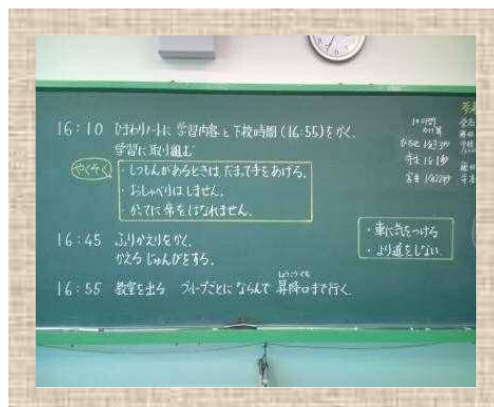 16:10 ひまわりノートに 学習内容と下校時間(16:55)をかく.
学習に取り組む
やくそく
・しつもんがあるときは だまって手をあげる.
・おしゃべりは しません.
・かってに 席をはなれません.
16:45 ふりかえりをかく.
かえる じゅんびをする.
16:55 教室を出る グループごとに ならんで 昇降口まで行く.
しょうこうぐち
・車に気をつける
・より道をしない